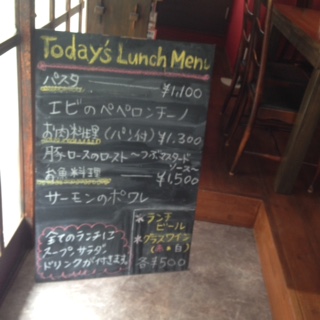 Today's Lunch Menu
パスタ ¥1,100
エビのペペロンチーノ
お肉料理(パン付)¥1,300
豚ロースのロースト〜粒マスタード
ソース〜
お魚料理 ¥1,500
サーモンのポワレ
全てのランチに
スープ、サラダ
ドリンクが付きます。
※ランチ
ビール
※グラスワイン
(赤・白)
各¥500